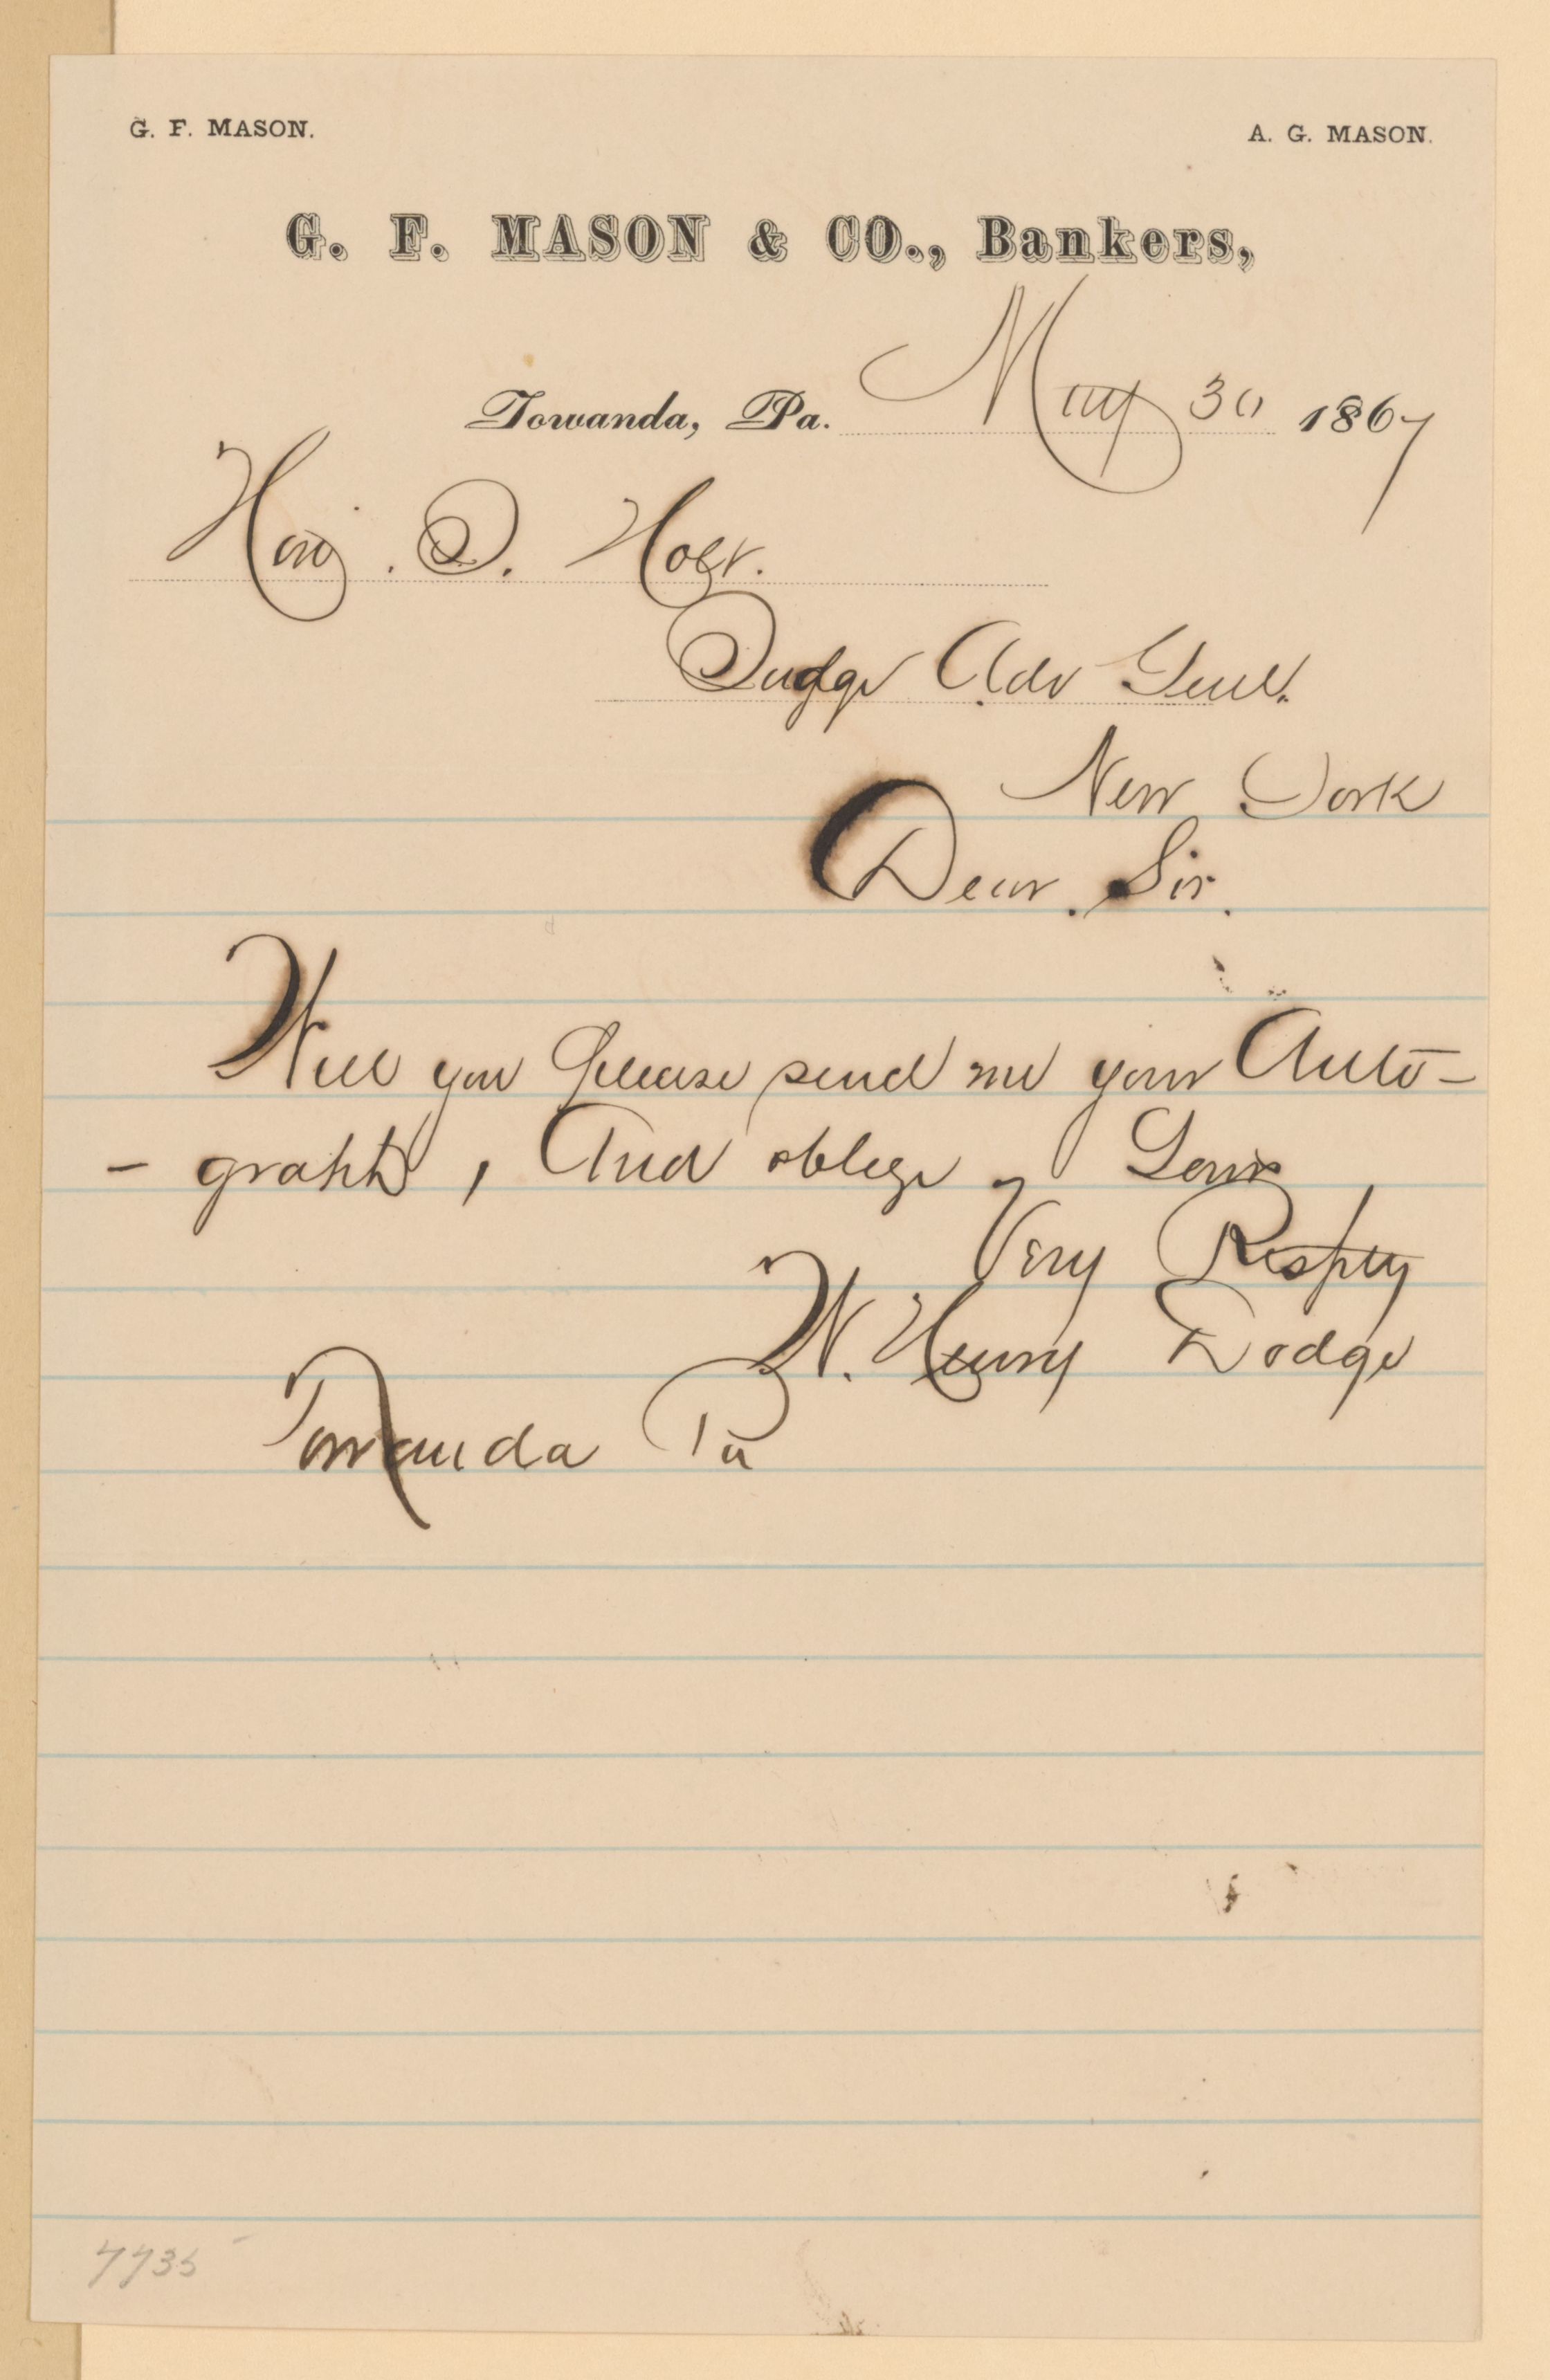 G. F. MASON. A. G. MASON.
G. F. MASON & CO., Bankers,
Towanda, Pa. May 30 1867
Hon. J. Holt.
Judge Adv Genl.
New York
Dear Sir.
Will you Please send me your Auto-
- graph, And oblige, Yours
Very Respty
W. Henry Dodge
Towanda Pa
7735